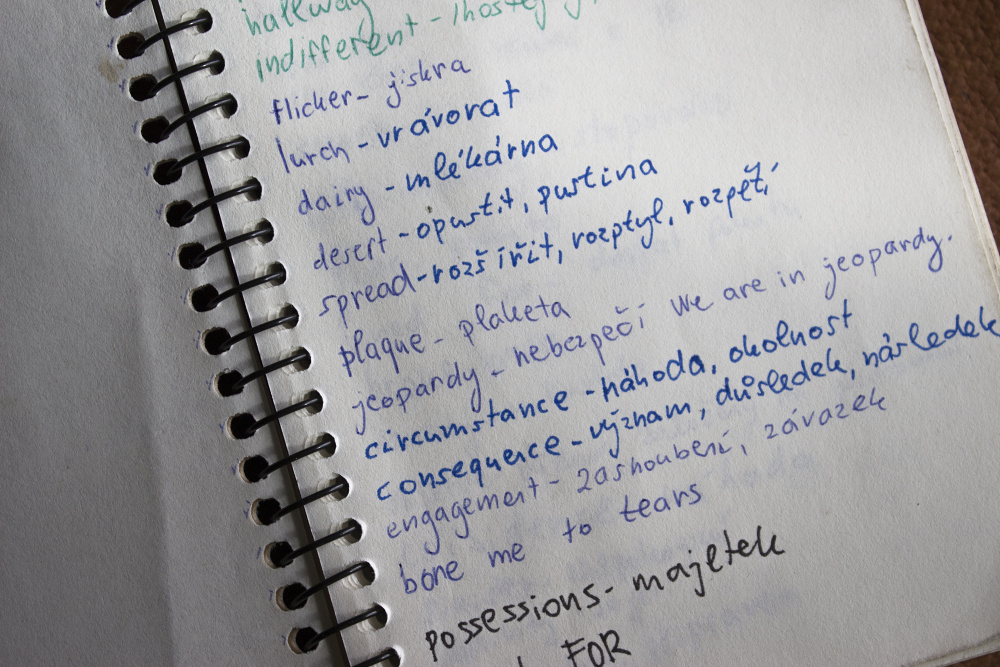 hallway
indifferent -
flicker - jiskra
lurch - vrávorat
dairy - mlékárna
desert - opustit, pustina
spread - rozšířit, rozptyl, rozpětí
plaque - plaketa
jeopardy - nebezpečí We are in jeopardy.
circumstance - náhoda, okolnost
consequence - význam, důsledek, následek
engagement - zasnoubení, závazek
bore me to tears
possessions - majetek
FOR